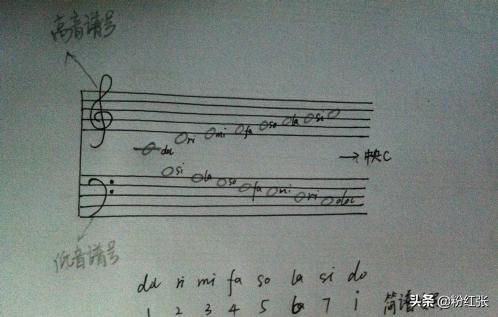 高音谱号
dol ri mi fa so la si
→ 中央C
si la so fa mi ri dol
低音谱号
dol ri mi fa so la si do
1 2 3 4 5 6 7 i 简谱
头条 @粉红张